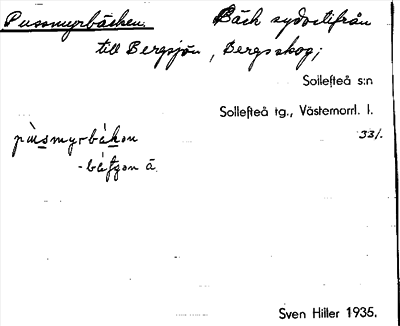 Pussmyrbäcken. Bäck sydostifrån
till Bergsjön, Bergsskog;
Sollefteå s:n
Sollefteå tg., Västernorrl. l.
33/.
pùsmyrbákən
-bátʃən ä.
Sven Hiller 1935.